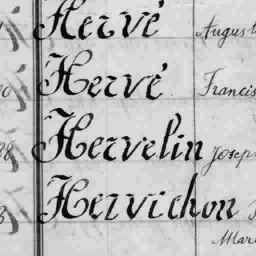 Hervé August
Hervé Francis
Hervelin Joseph
Hervichon
Mari